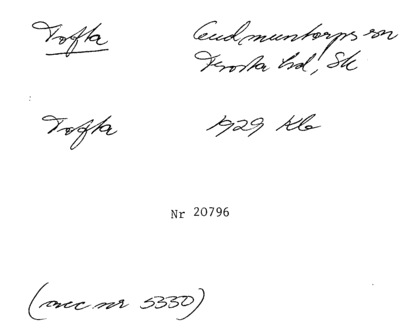 Tofta Gudmuntorps sn
Frosta hd, Sk
Tofta 1929 Kb
Nr 20796
(acc nr 5330)